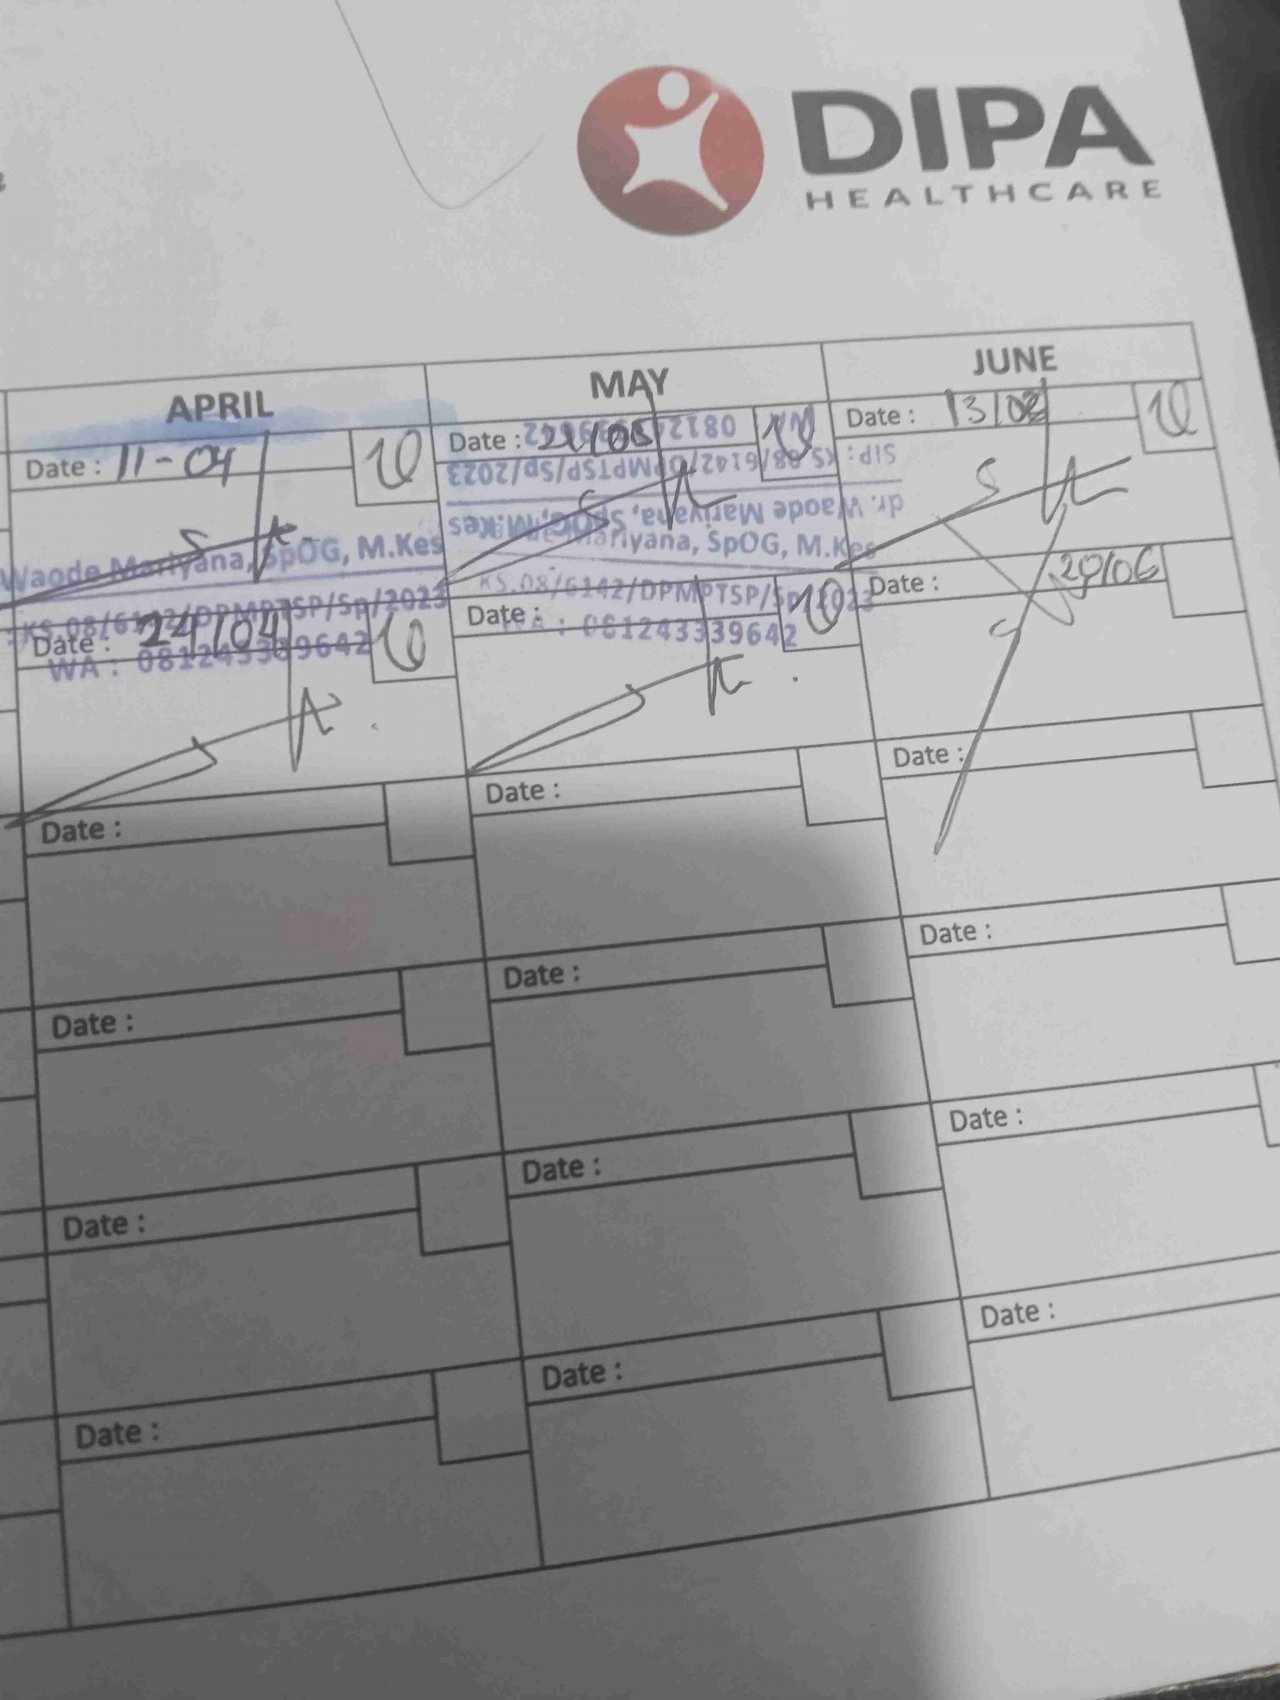 DIPA
HEALTHCARE
APRIL
MAY
JUNE
Date : 11-04
Date :
Date : 13/0
WA
SIP: KS.08/6142/DPMPTSP/Sp/2023
dr. Waode Mariyana, SpOG, M.Kes
Waode Mariyana, SpOG, M.Kes
Mariyana, SpOG, M.Kes
KS.08/6142/DPMPTSP/Sp/2023
KS.08/6142/DPMPTSP/Sp/2023
Date : 24/04
WA : 081243339642
Date :
WA : 081243339642
Date : 29/06
Date :
Date :
Date :
Date :
Date :
Date :
Date :
Date :
Date :
Date :
Date :
Date :